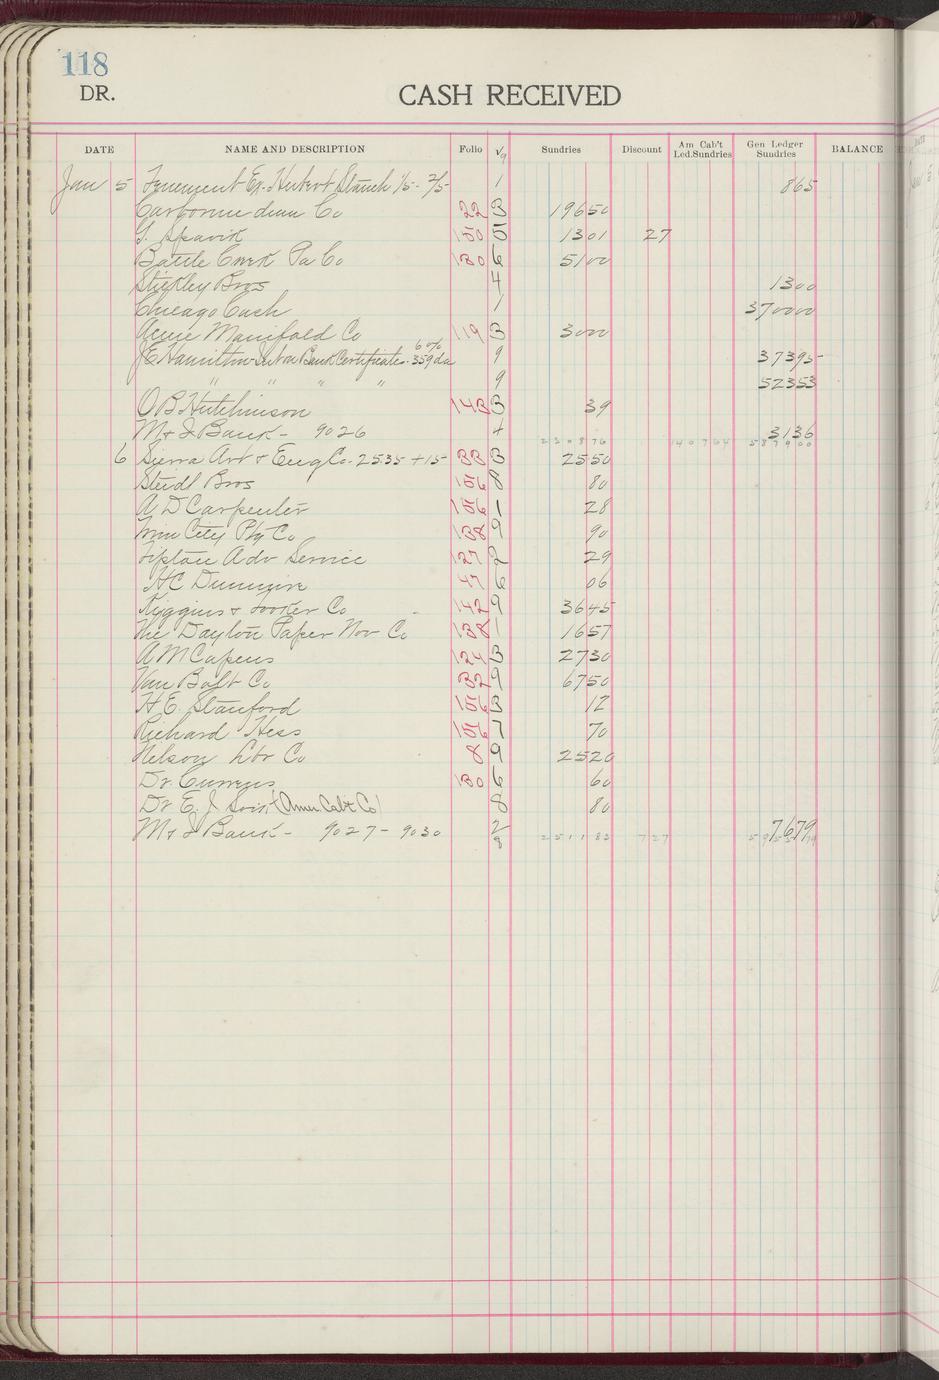 118
DR.
CASH RECEIVED
DATE NAME AND DESCRIPTION Folio Sundries Discount Am Cab't Led.Sundries Gen Ledger Sundries BALANCE
Jan 5 Tenement Ex. Hubert Stanch 1/5 - 2/5 - 1 865
Carborundum Co 22 3 19650
Spavik 150 5 1301 27
Battle Creek Pa Co 130 6 5100
Stickley Bros 4 1300
Chicago Cash 1 370000
Acme Manifold Co 119 3 3000
J E Hamilton Bank Certificates 6% 359 da 9 37395
" " " " 9 52353
O B Hutchinson 143 3 39
M & J Bank - 9026 4 3136
230876 140764 587900
6 Sierra Art & Eng Co. 2535 + 15 33 3 2550
Steidl Bros 156 8 80
A D Carpenter 156 1 28
Twin City Ptg Co 138 9 90
Tiptan Adv Service 127 2 29
HC Dunmire 47 6 06
Riggins & Co 142 9 3645
The Dayton Paper Nov Co 138 1 1657
A M Capens 124 3 2730
Van Bolt Co 32 9 6750
H. E. Stanford 156 3 12
Richard Hess 156 7 70
Nelson Lbr Co 8 9 2520
Dr. Currens 130 6 60
Dr E. J (Amer. Cabt Co) 8 80
M & J Bank - 9027 - 9030 2/8 7679
251183 727